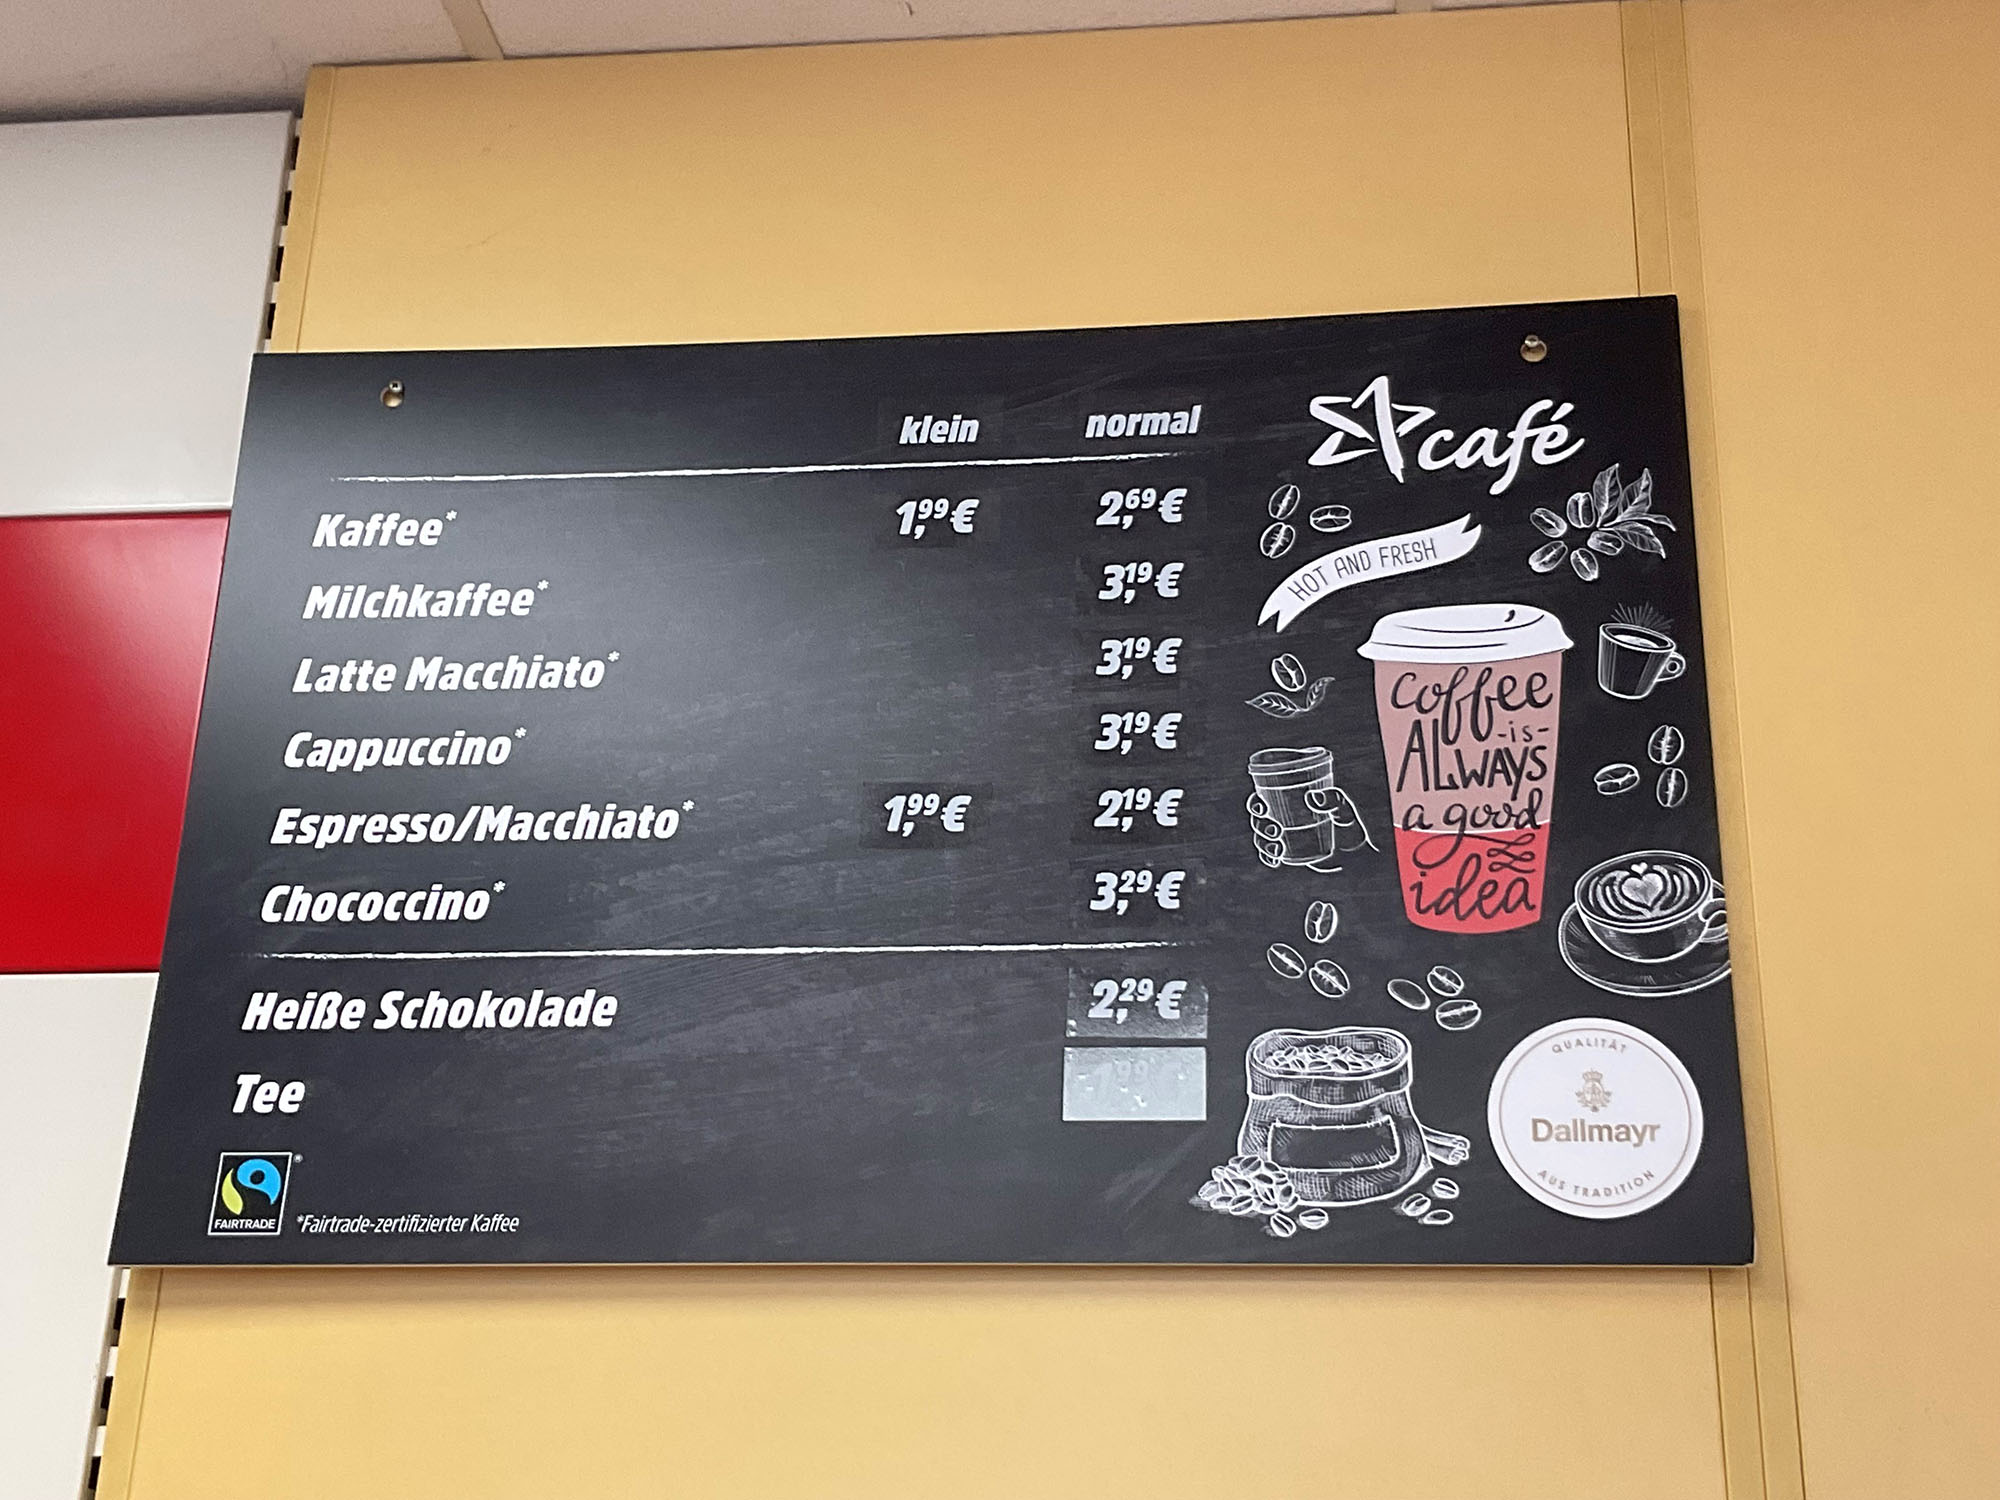 klein normal
Kaffee* 1,99€ 2,69€
Milchkaffee* 3,19€
Latte Macchiato* 3,19€
Cappuccino* 3,19€
Espresso/Macchiato* 1,99€ 2,19€
Chococcino* 3,29€
Heiße Schokolade 2,29€
Tee 1,99€
FAIRTRADE
*Fairtrade-zertifizierter Kaffee
café
HOT AND FRESH
coffee
-is-
ALWAYS
a good
idea
QUALITÄT
Dallmayr
AUS TRADITION